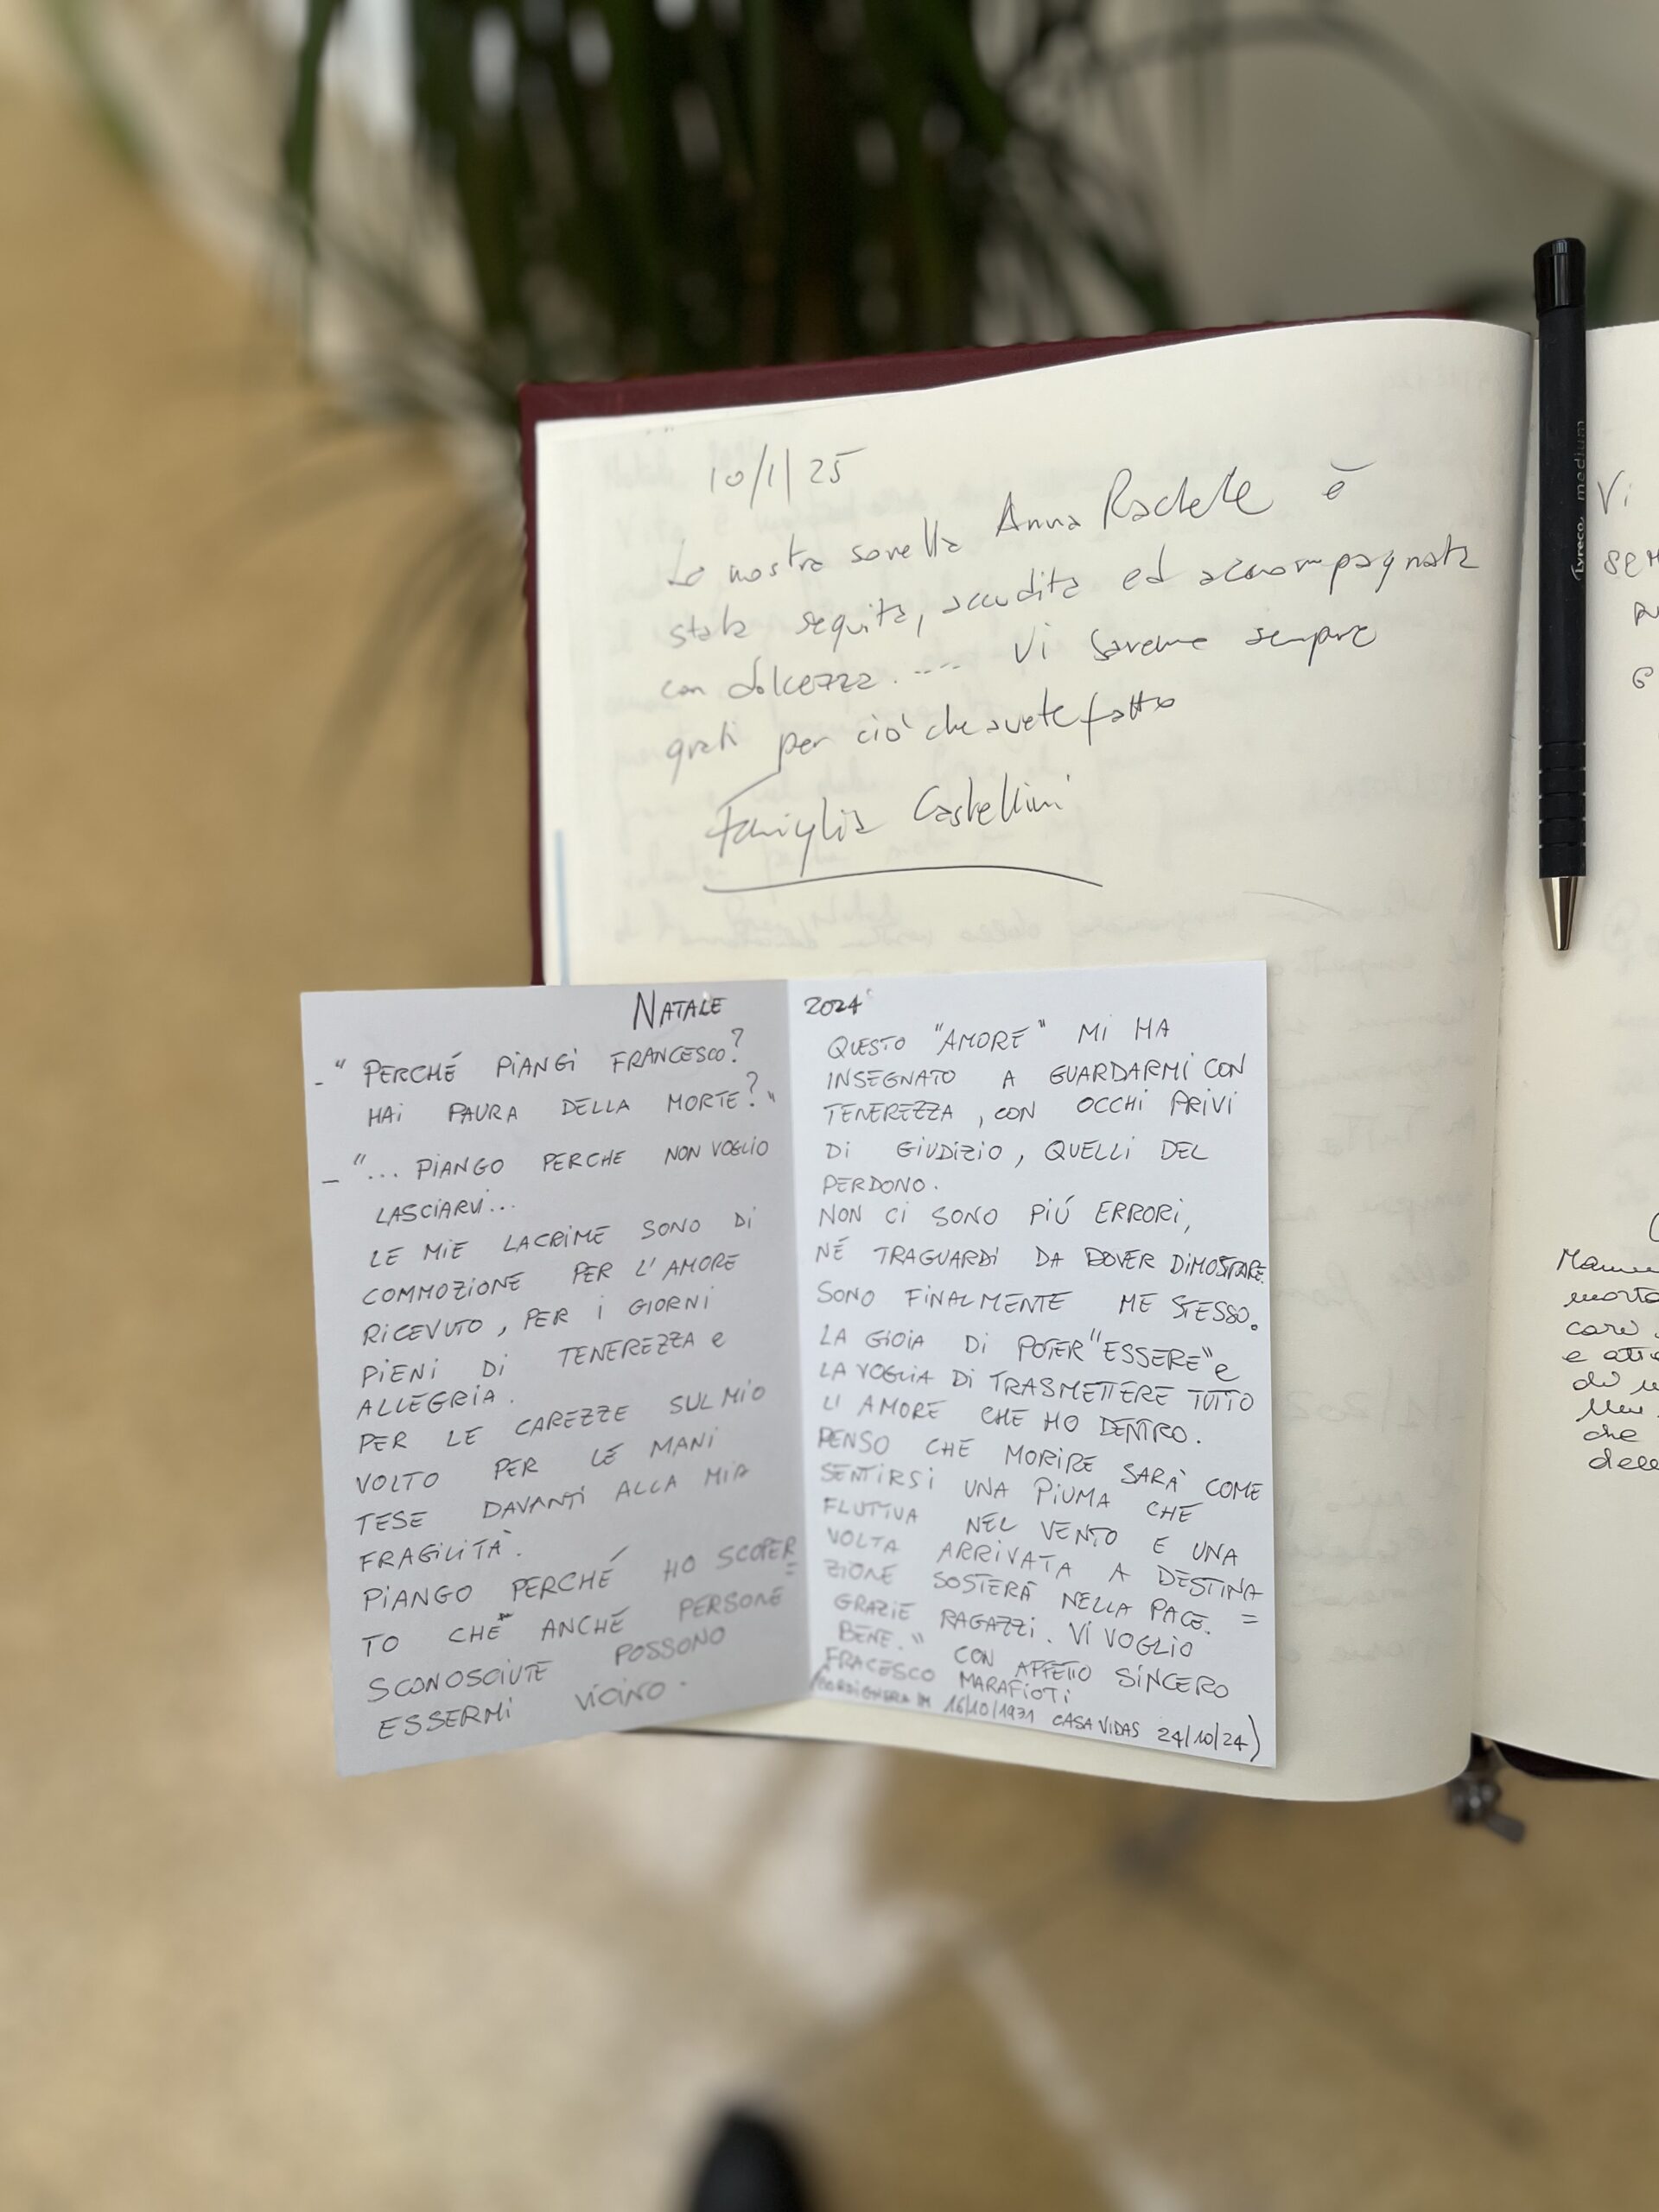 10/1/25
La nostra sorella Anna Rachele è
stata seguita, accudita ed accompagnata
con dolcezza..... Vi saremo sempre
grati per ciò che avete fatto
Famiglia Castellini
Lyreco medium
NATALE 2024
- " PERCHÉ PIANGI FRANCESCO?
HAI PAURA DELLA MORTE?"
- "... PIANGO PERCHE NON VOGLIO
LASCIARVI...
LE MIE LACRIME SONO DI
COMMOZIONE PER L'AMORE
RICEVUTO, PER I GIORNI
PIENI DI TENEREZZA e
ALLEGRIA.
PER LE CAREZZE SUL MIO
VOLTO PER LE MANI
TESE DAVANTI ALLA MIA
FRAGILITÀ.
PIANGO PERCHÉ HO SCOPER=
TO CHE ANCHE PERSONE
SCONOSCIUTE POSSONO
ESSERMI VICINO.
QUESTO "AMORE" MI HA
INSEGNATO A GUARDARMI CON
TENEREZZA, CON OCCHI PRIVI
DI GIUDIZIO, QUELLI DEL
PERDONO.
NON CI SONO PIÚ ERRORI,
NÉ TRAGUARDI DA DOVER DIMOSTRARE.
SONO FINALMENTE ME STESSO.
LA GIOIA DI POTER "ESSERE" e
LA VOGLIA DI TRASMETTERE TUTTO
L'AMORE CHE HO DENTRO.
PENSO CHE MORIRE SARÀ COME
SENTIRSI UNA PIUMA CHE
FLUTTUA NEL VENTO E UNA
VOLTA ARRIVATA A DESTINA=
ZIONE SOSTERÁ NELLA PACE.
GRAZIE RAGAZZI. VI VOGLIO
BENE." CON AFFETTO SINCERO
FRACESCO MARAFIOTI
16/10/1931 CASA VIDAS 24/10/24)
Vi
e
care
e
che